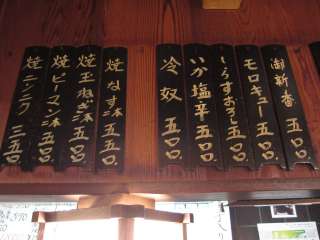 御新香 五〇〇
モロキュー 五〇〇
しらすおろし 五〇〇
いか塩辛 五〇〇
冷奴 五〇〇
焼なす二本 五五〇
焼玉ねぎ二本 五五〇
焼ピーマン二本 五五〇
焼ニンニク 三五〇